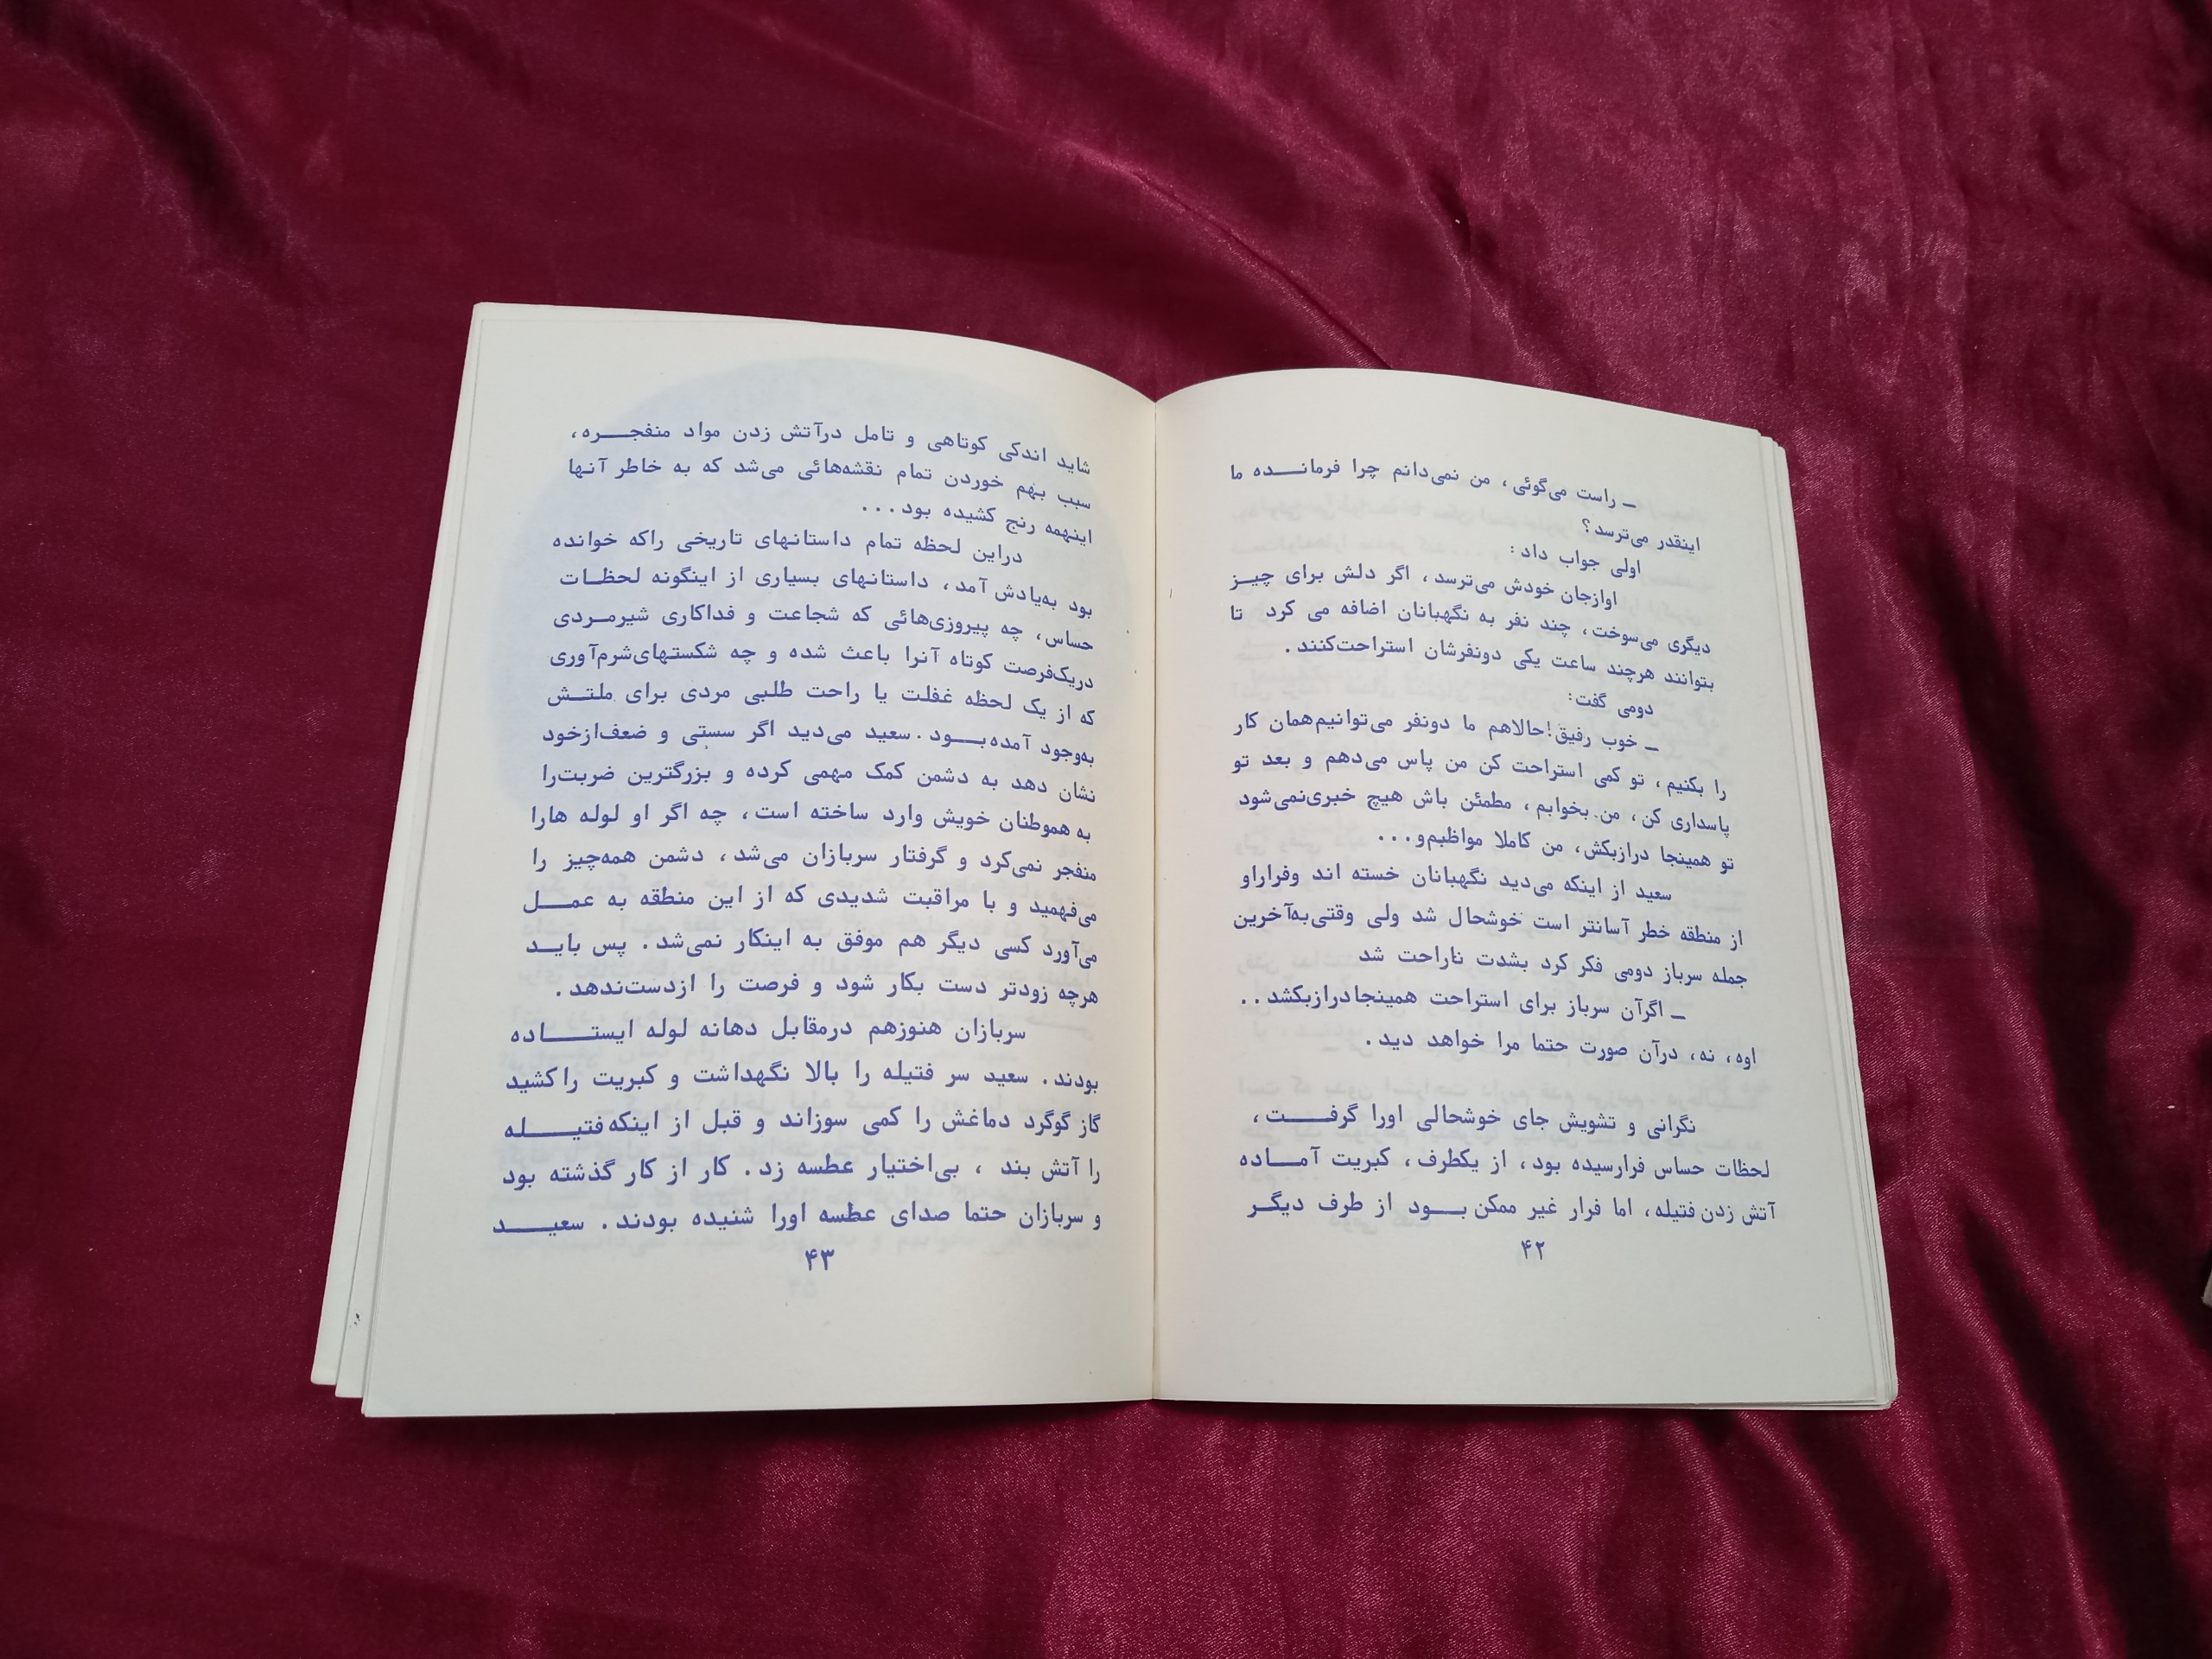 ـ راست می‌گوئی، من نمی‌دانم چرا فرمانــده ما
اینقدر می‌ترسد؟
اولی جواب داد:
اوازجان خودش می‌ترسد، اگر دلش برای چیــز
دیگری می‌سوخت، چند نفر به نگهبانان اضافه می کرد تا
بتوانند هرچند ساعت یکی دونفرشان استراحت‌کنند.
دومی گفت:
ـ خوب رفیق!حالاهم ما دونفر می‌توانیم‌همان کار
را بکنیم، تو کمی استراحت کن من پاس می‌دهم و بعد تو
پاسداری کن، من بخوابم، مطمئن باش هیچ خبری‌نمی‌شود
تو همینجا درازبکش، من کاملا مواظبم‌و...
سعید از اینکه می‌دید نگهبانان خسته اند وفراراو
از منطقه خطر آسانتر است خوشحال شد ولی وقتی‌به‌آخرین
جمله سرباز دومی فکر کرد بشدت ناراحت شد
ـ اگرآن سرباز برای استراحت همینجادرازبکشد..
اوه، نه، درآن صورت حتما مرا خواهد دید.
نگرانی و تشویش جای خوشحالی اورا گرفــت،
لحظات حساس فرارسیده بود، از یکطرف، کبریت آمــاده
آتش زدن فتیله، اما فرار غیر ممکن بــود از طرف دیگــر
۴۲
شاید اندکی کوتاهی و تامل درآتش زدن مواد منفجــره،
سبب بهم خوردن تمام نقشه‌هائی می‌شد که به خاطر آنها
اینهمه رنج کشیده بود...
دراین لحظه تمام داستانهای تاریخی راکه خوانده
بود به‌یادش آمد، داستانهای بسیاری از اینگونه لحظــات
حساس، چه پیروزی‌هائی که شجاعت و فداکاری شیرمــردی
دریک‌فرصت کوتاه آنرا باعث شده و چه شکستهای‌شرم‌آوری
که از یک لحظه غفلت یا راحت طلبی مردی برای ملتــش
به‌وجود آمده‌بــود. سعید می‌دید اگر سستی و ضعف‌ازخود
نشان دهد به دشمن کمک مهمی کرده و بزرگترین ضربت‌را
به هموطنان خویش وارد ساخته است، چه اگر او لوله هارا
منفجر نمی‌کرد و گرفتار سربازان می‌شد، دشمن همه‌چیز را
می‌فهمید و با مراقبت شدیدی که از این منطقه به عمــل
می‌آورد کسی دیگر هم موفق به اینکار نمی‌شد. پس بایــد
هرچه زودتر دست بکار شود و فرصت را ازدست‌ندهد.
سربازان هنوزهم درمقابل دهانه لوله ایستــاده
بودند. سعید سر فتیله را بالا نگهداشت و کبریت راکشید
گاز گوگرد دماغش را کمی سوزاند و قبل از اینکه‌فتیــله
را آتش بند ، بی‌اختیار عطسه زد. کار از کار گذشته بود
و سربازان حتما صدای عطسه اورا شنیده بودند. سعیــد
۴۳